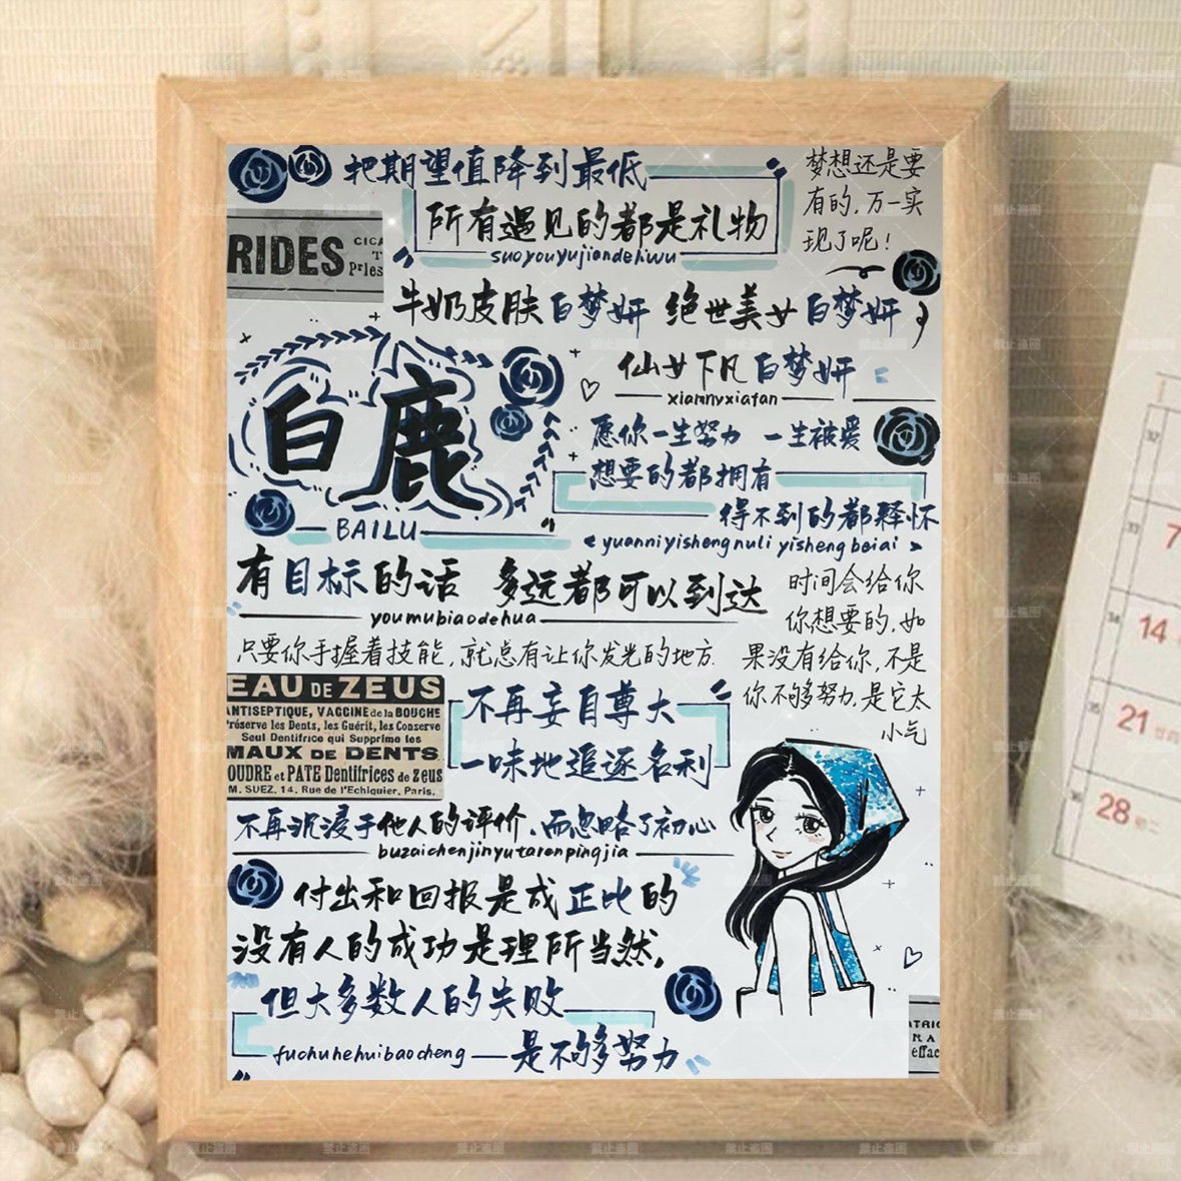 把期望值降到最低
所有遇见的都是礼物
suoyouyujiandeliwu
梦想还是要
有的,万一实
现了呢!
RIDES
CICA
T
Pries
牛奶皮肤白梦妍 绝世美女白梦妍
仙女下凡白梦妍
xiannvxiafan
白鹿
BAILU
愿你一生努力 一生被爱
想要的都拥有
得不到的都释怀
yuanniyishengnuli yishengbeiai
有目标的话 多远都可以到达
youmubiaodehua
时间会给你
你想要的,如
果没有给你,不是
你不够努力,是它太
小气
只要你手握着技能,就总有让你发光的地方.
EAU DE ZEUS
ANTISEPTIQUE, VACCINE de la BOUCHE
Préserve les Dents, les Guérit, les Conserve
Seul Dentifrice qui Supprime les
MAUX DE DENTS
OUDRE et PATE Dentifrices de Zeus
M. SUEZ, 14, Rue de l'Echiquier, Paris.
不再妄自尊大
一味地追逐名利
不再沉浸于他人的评价,而忽略了初心
buzaichenjinyutarenpingjia
付出和回报是成正比的
没有人的成功是理所当然,
但大多数人的失败
fuchuhehuibaocheng
是不够努力
ATRIC
effac
32
33
7
34
14
35
21
36
28
初二
禁止盗图